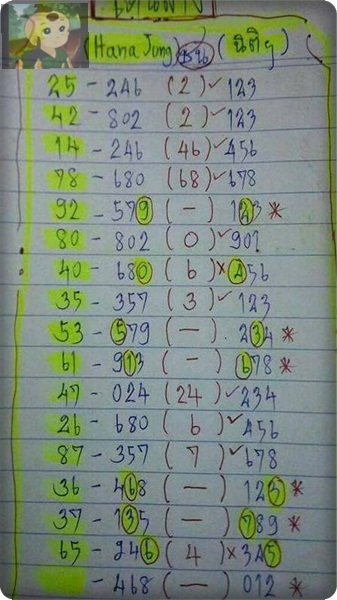 Hana Jung ชน (นิติๆ)
25 - 246 (2) ✓ 123
42 - 802 (2) ✓ 123
14 - 246 (46) ✓ 456
78 - 680 (68) ✓ 678
92 - 579 (-) 123 *
80 - 802 (0) ✓ 901
40 - 680 (6) × 456
35 - 357 (3) ✓ 123
53 - 579 (-) 234 *
61 - 913 (-) 678 *
47 - 024 (24) ✓ 234
26 - 680 (6) ✓ 456
87 - 357 (7) ✓ 678
36 - 468 (-) 123 *
37 - 135 (-) 789 *
65 - 246 (4) × 345
- 468 (-) 012 *